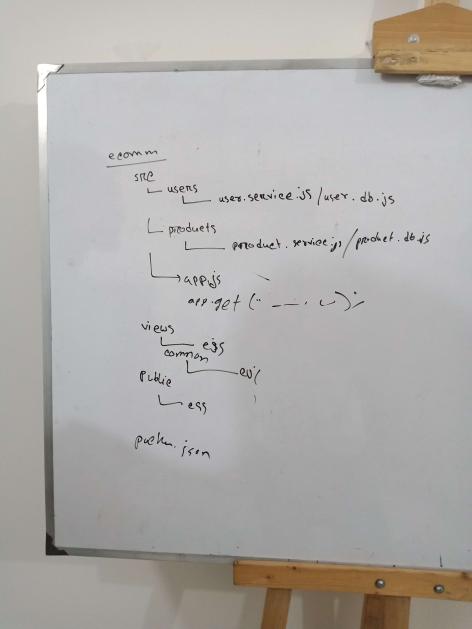 ecomm
src
users
user.service.js/user.db.js
products
product.service.js/product.db.js
app.js
app.get("
views
ejs
common
Public
css
json